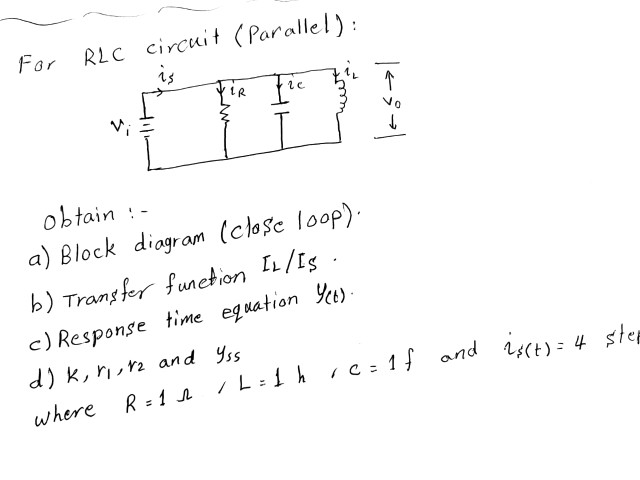 For RLC circuit (Parallel):
is
iR
ic
iL
Vi
Vo
obtain :-
a) Block diagram (close loop).
b) Transfer function IL/IS .
c) Response time equation y(t).
d) K, r1, r2 and yss
where R = 1 Ω , L = 1 h , c = 1 f and is(t) = 4 step